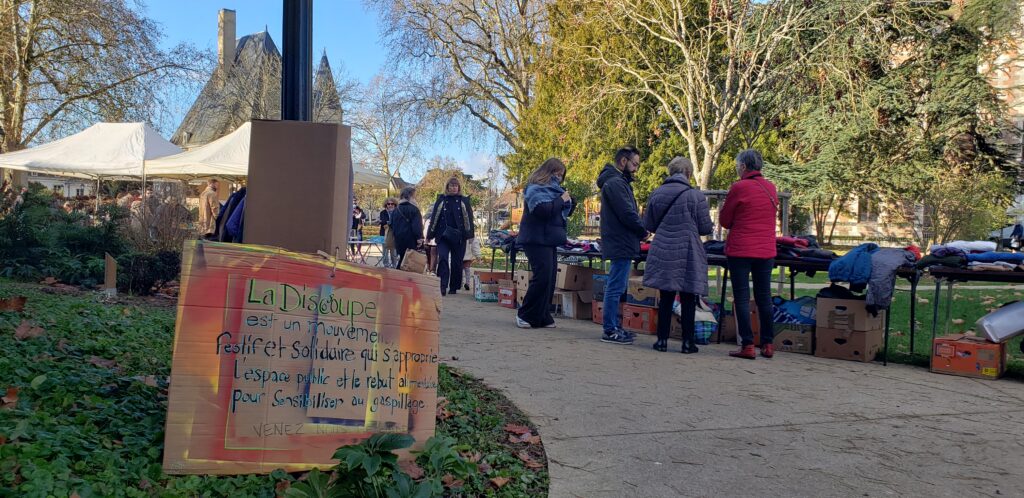 La Discoupe
est un mouvement
festif et solidaire qui s'approprie
l'espace public et le rebut alimentaire
pour sensibiliser au gaspillage.
VENEZ